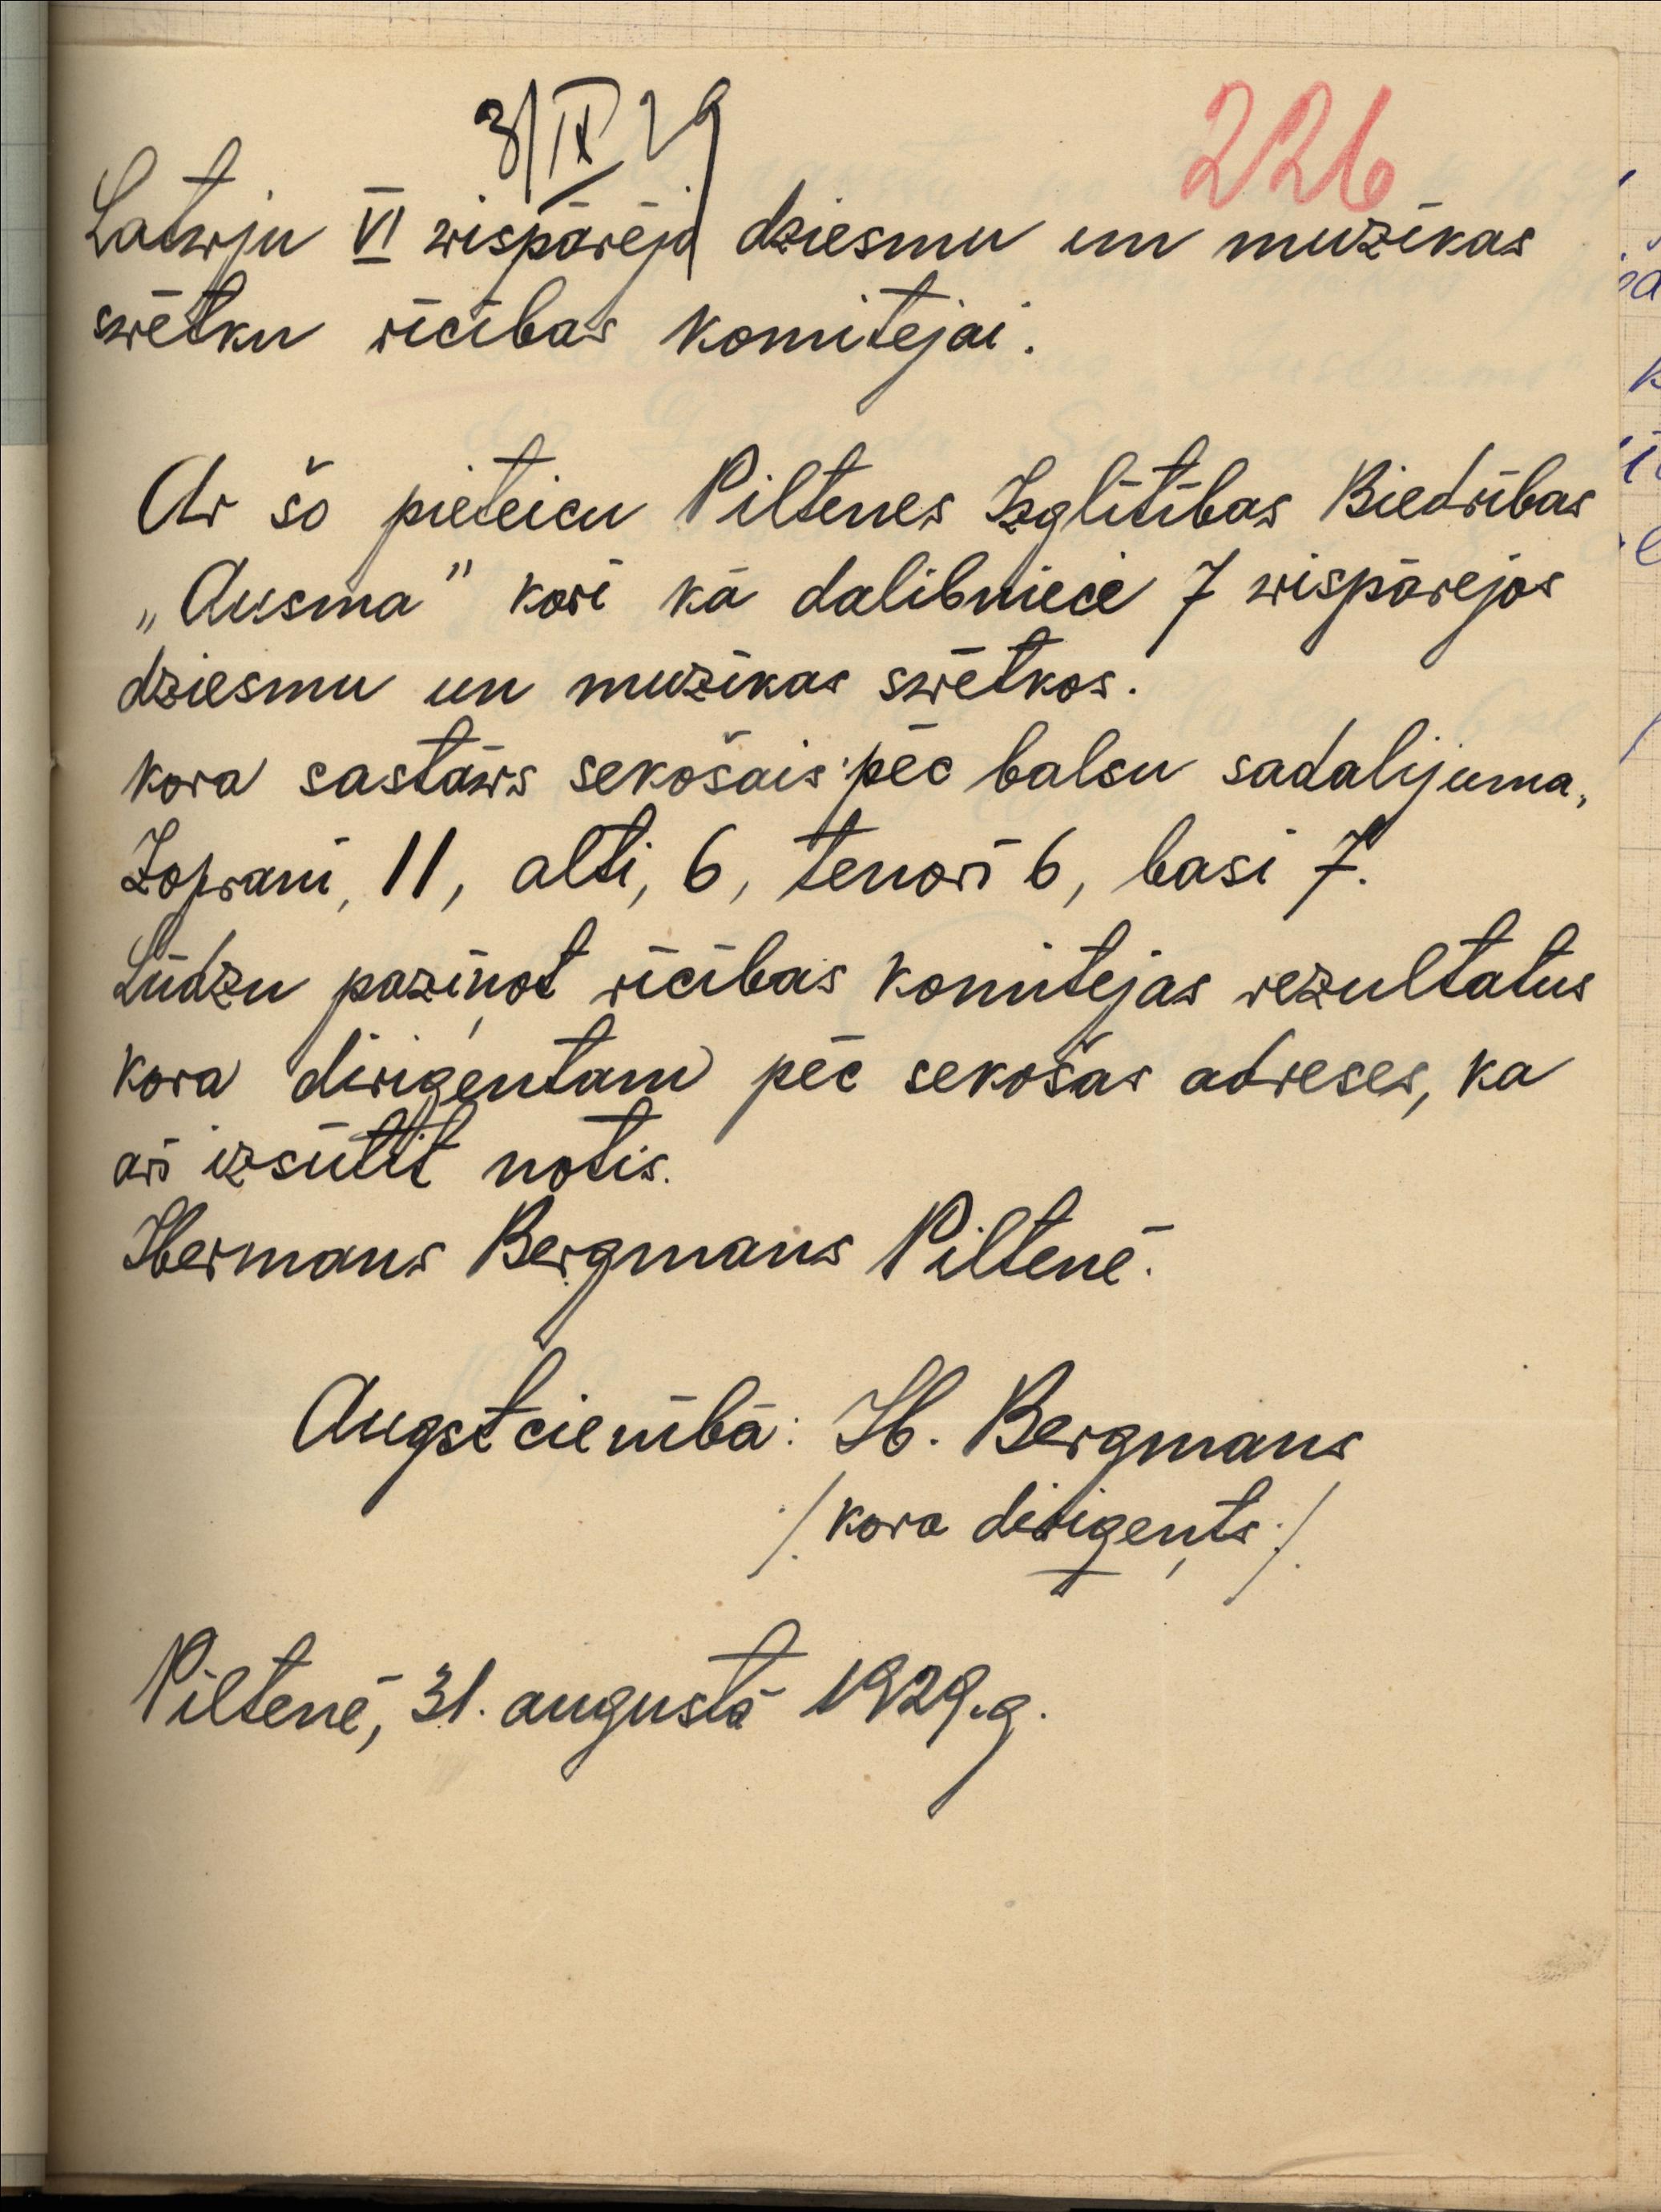 3/IX 29
226
Latwju VI wispārēja dziesmu un muzikas
swētku rīcības komitejai.
Ar šo pieteicu Piltenes Izglītības Biedrības
„Ausma” kori kā dalibnieci 7 wispārejos
dziesmu un muzikas swētkos.
kora sastāws sekošais pēc balsu sadalijuma,
Zoprani, 11, alti, 6, tenori 6, basi 7.
Lūdzu paziņot rīcības komitejas rezultatus
kora dirigentam pēc sekošas adreses, ka
arī izsūtit notis.
Hermans Bergmans Piltenē.
Augstcienībā: H. Bergmans
/. kora dirigeņts ./.
Piltenē, 31. augustā 1929.g.